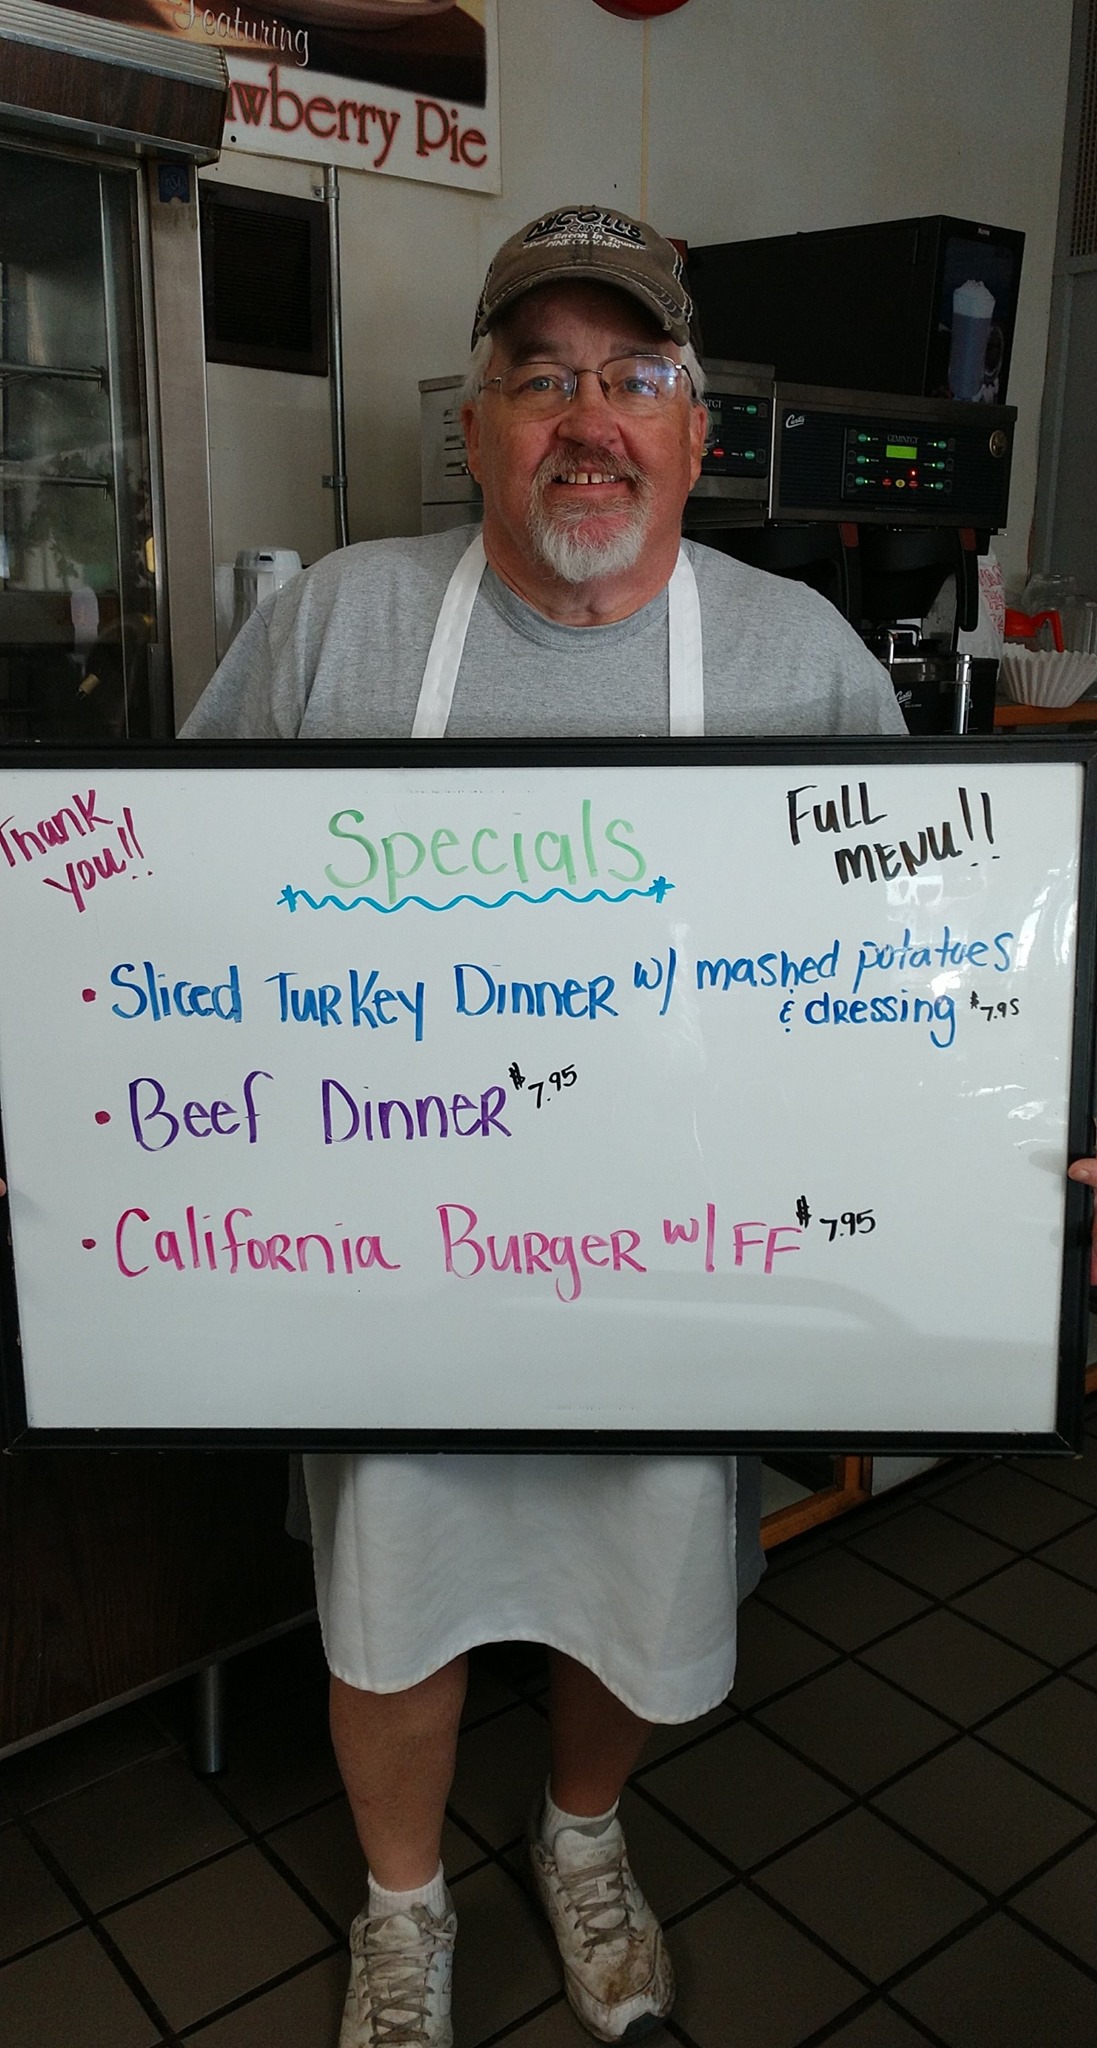 Featuring
wberry Pie
NICOLL'S
CAFE
PINE CITY, MN
Curtis
GEMINI GT
Thank
you!!
Specials
FULL
MENU!!
• Sliced Turkey Dinner w/ mashed potatoes
& dressing $7.95
• Beef Dinner $7.95
• California Burger w/ FF $7.95